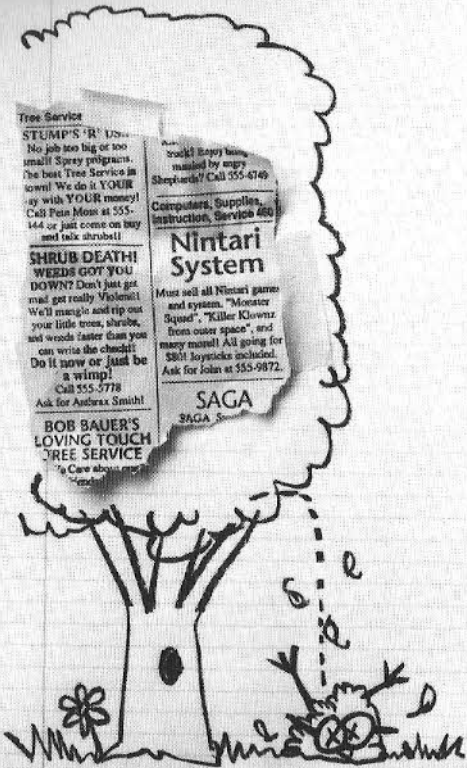 Tree Service
STUMP'S 'R' US..
No job too big or too
small! Sprey programs.
The best Tree Service in
town! We do it YOUR
ay with YOUR money!
Call Pete Moss at 555-
144 or just come on buy
and talk shrubs!!
SHRUB DEATH!
WEEDS GOT YOU
DOWN? Don't just get
mad get really Violent!!
We'll mangle and rip out
your little trees, shrubs,
and weeds faster than you
can write the check!!
Do it now or just be
a wimp!
Call 555-5778
Ask for Anthrax Smith!
BOB BAUER'S
LOVING TOUCH
TREE SERVICE
Care about
truck! Enjoy being
mauled by angry
Shepherds? Call 555-6749
Computers, Supplies,
Instruction, Service 460
Nintari
System
Must sell all Nintari games
and system. "Monster
Squad", "Killer Klownz
from outer space", and
many more!! All going for
$80! Joysticks included.
Ask for John at 555-9872.
SAGA
SAGA